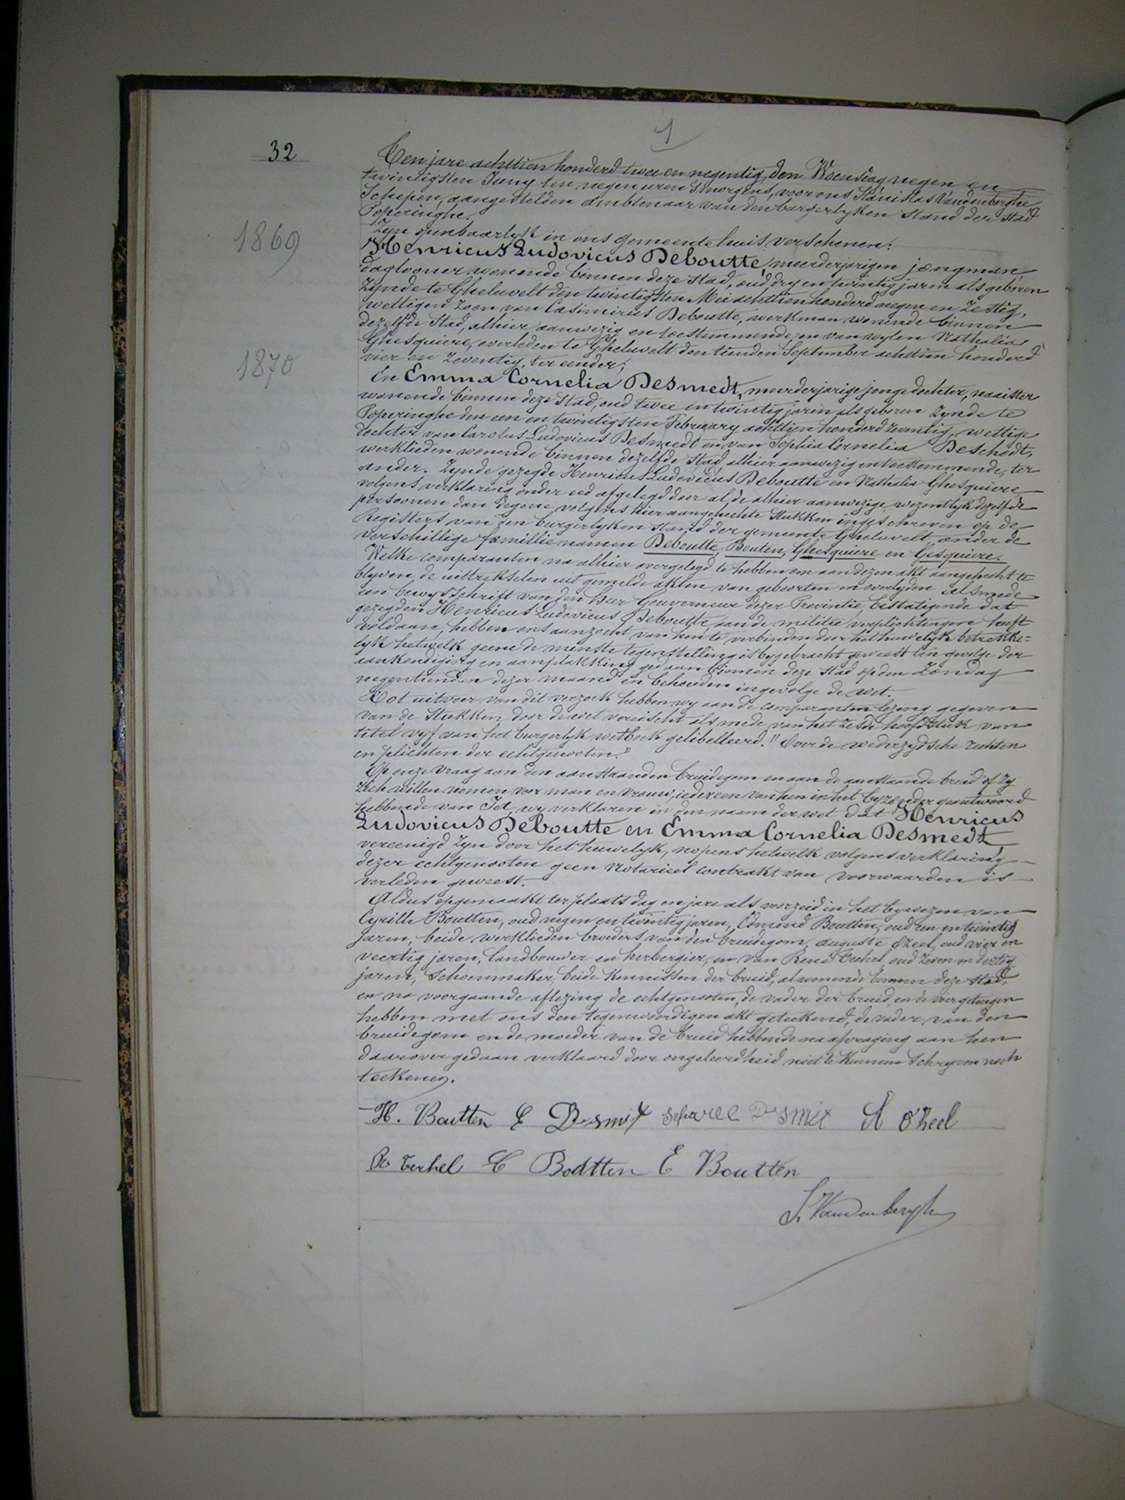 1
32
Ten jare achttien honderd twee en negentig, den Woensdag negen en
twintigsten Juny ten negen uren s'morgens, voor ons Stanislas Vandenberghe
Schepen, aangestelden ambtenaar van den burgerlyken stand der stad
Poperinghe.
Zyn openbaarlyk in ons gemeentehuis verschenen:
1869
Henricus Ludovicus Deboutte, meerderjarigen jongman
daglooner wonende binnen deze stad, oud dry en twintig jaren als geboren
zynde te Gheluvelt den twintigsten Mei achttien honderd negen en zestig,
wettigen zoon van Casimirus Deboutte, werkman, wonende binnen
dezelfde stad, alhier aanwezig en toestemmende, en van wylen Nathalia
Ghesquiere, overleden te Gheluvelt den tienden September achttien honderd
1870
vier en zeventig, ter eender;
En Emma Cornelia Desmedt, meerderjarige jonge dochter, naaister
wonende binnen deze stad, oud twee en twintig jaren als geboren zynde te
Poperinghe den een en twintigsten February achttien honderd zeventig, wettige
dochter van Carolus Ludovicus Desmedt en van Sophia Cornelia Deschodt,
werklieden wonende binnen dezelfde stad, alhier aanwezig en toestemmende, ter
ander. Zynde gezegde Henricus Ludovicus Deboutte en Nathalia Ghesquiere
volgens verklaring onder eed afgelegd door al de alhier aanwezige wezentlyk dezelfde
persoonen dan degene volgens hier aangehechte stukken ingeschreven op de
Registers van den burgerlyken stand der gemeente Gheluvelt onder de
verschillige familienamen Deboutte, Bouten, Ghesquiere en Gesquiere.
Welke comparanten na alhier overgelegd te hebben om aan dezen akt aangehecht te
blyven, de uittrekselen uit gemelde akten van geboorten en overlyden alsmede
een bewysschrift van den Heer Gouverneur dezer Provintie, bestatigende dat
gezegden Henricus Ludovicus Deboutte aan de militie verplichtingen heeft
voldaan, hebben ons aanzocht van hun te verbinden door het huwelyk betrekke=
lyk hetwelk geene de minste tegenstelling is bygebracht geweest ten gevolge der
aankondiging en aanplakking gedaan binnen deze stad op den Zondag
negentienden dezer maand en behouden ingevolge de wet.
Tot uitvoer van dit verzoek hebben wy aan de comparanten lezing gegeven
van de stukken door de wet vereischt alsmede van het zesde hoofdstuk van
titel vyf van het burgerlyk wetboek gelibelleerd: "Over de wederzydsche rechten
en plichten der echtgenooten."
Op onze vraag aan den aanstaanden bruidegom en aan de aanstaande bruid of zy
zich willen nemen voor man en vrouw, iedereen van hen in het byzonder geantwoord
hebbende van Ja, wy verklaren in den naam der wet dat Henricus
Ludovicus Deboutte en Emma Cornelia Desmedt,
vereenigd zyn door het huwelyk, nopens hetwelk volgens verklaring
dezer echtgenooten geen Notarieel contrakt van voorwaarden is
verleden geweest.
Aldus opgemaakt ter plaats dag en jare als voorzeid in het bywezen van
Cyrille Boutten, oud negen en twintig jaren, Edmond Boutten, oud een en twintig
jaren, beide werklieden broeders van den bruidegom, Auguste Ozeel, oud vier en
veertig jaren, landbouder en herbergier, en van René Verhel oud zeven en dertig
jaren, schoenmaker, beide kennissen der bruid, al wonende binnen deze stad,
en na voorgaande aflezing de echtgenooten, de vader der bruid, en de vier getuigen
hebben met ons den tegenwoordigen akt geteekend, de vader van den
bruidegom en de moeder van de bruid hebbende na afvraging aan hen
daarover gedaan verklaard door ongeleerdheid niet te kunnen schryven noch
teekenen.
H. Boutten E Desmet Desmet A O'Zeel
C Bodtten E Boutten
S. Vandenbergh